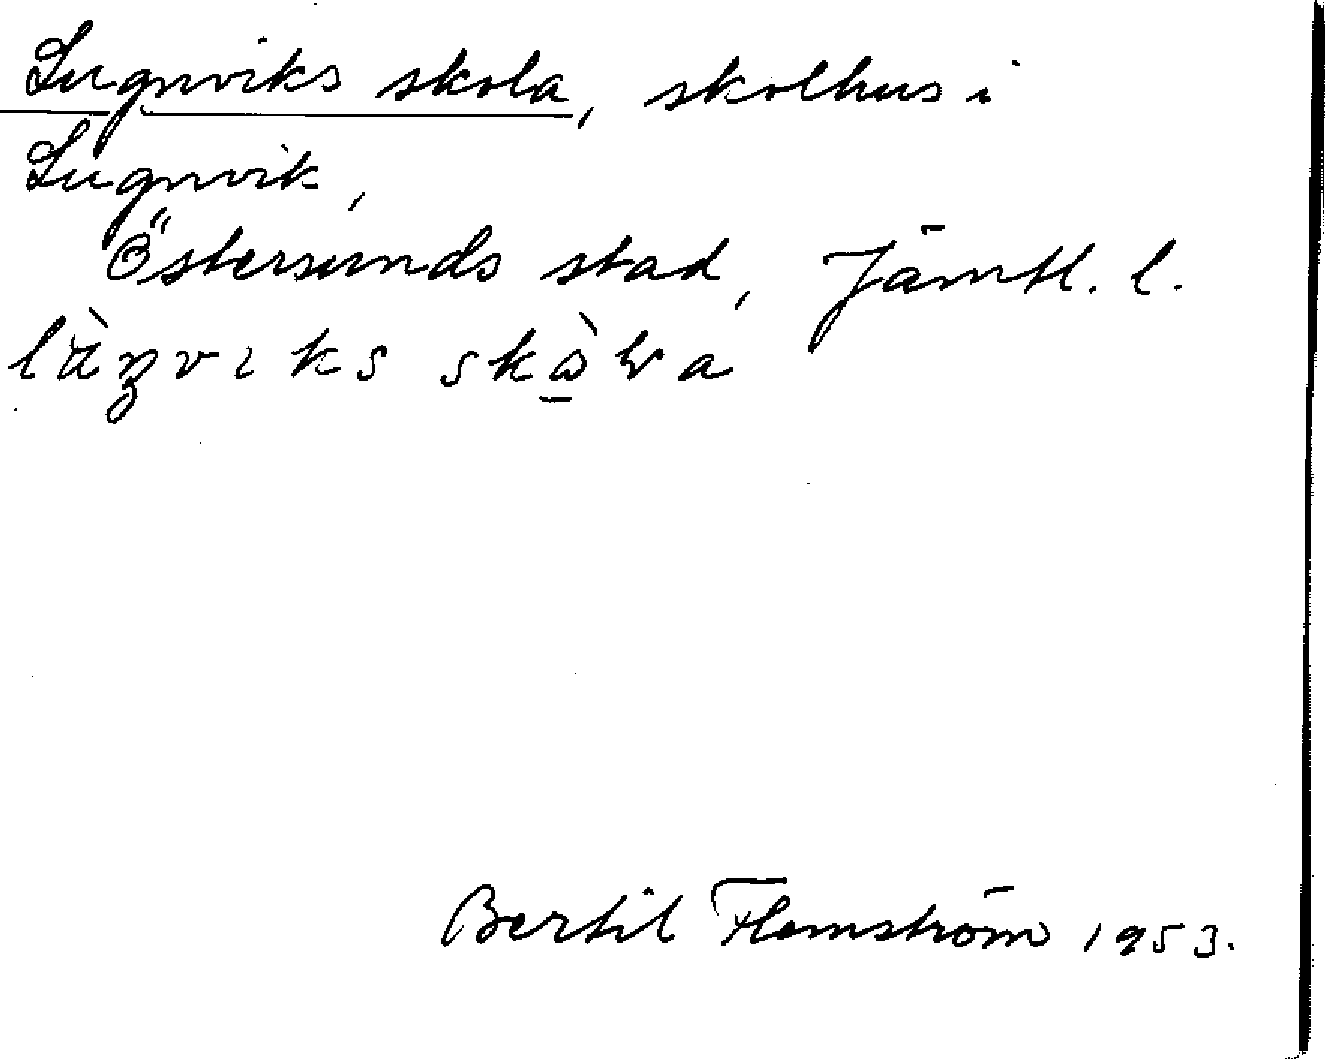 Lugnviks skola, skolhus i
Lugnvik,
Östersunds stad, Jämtl. l.
Bertil Flemström 1953.